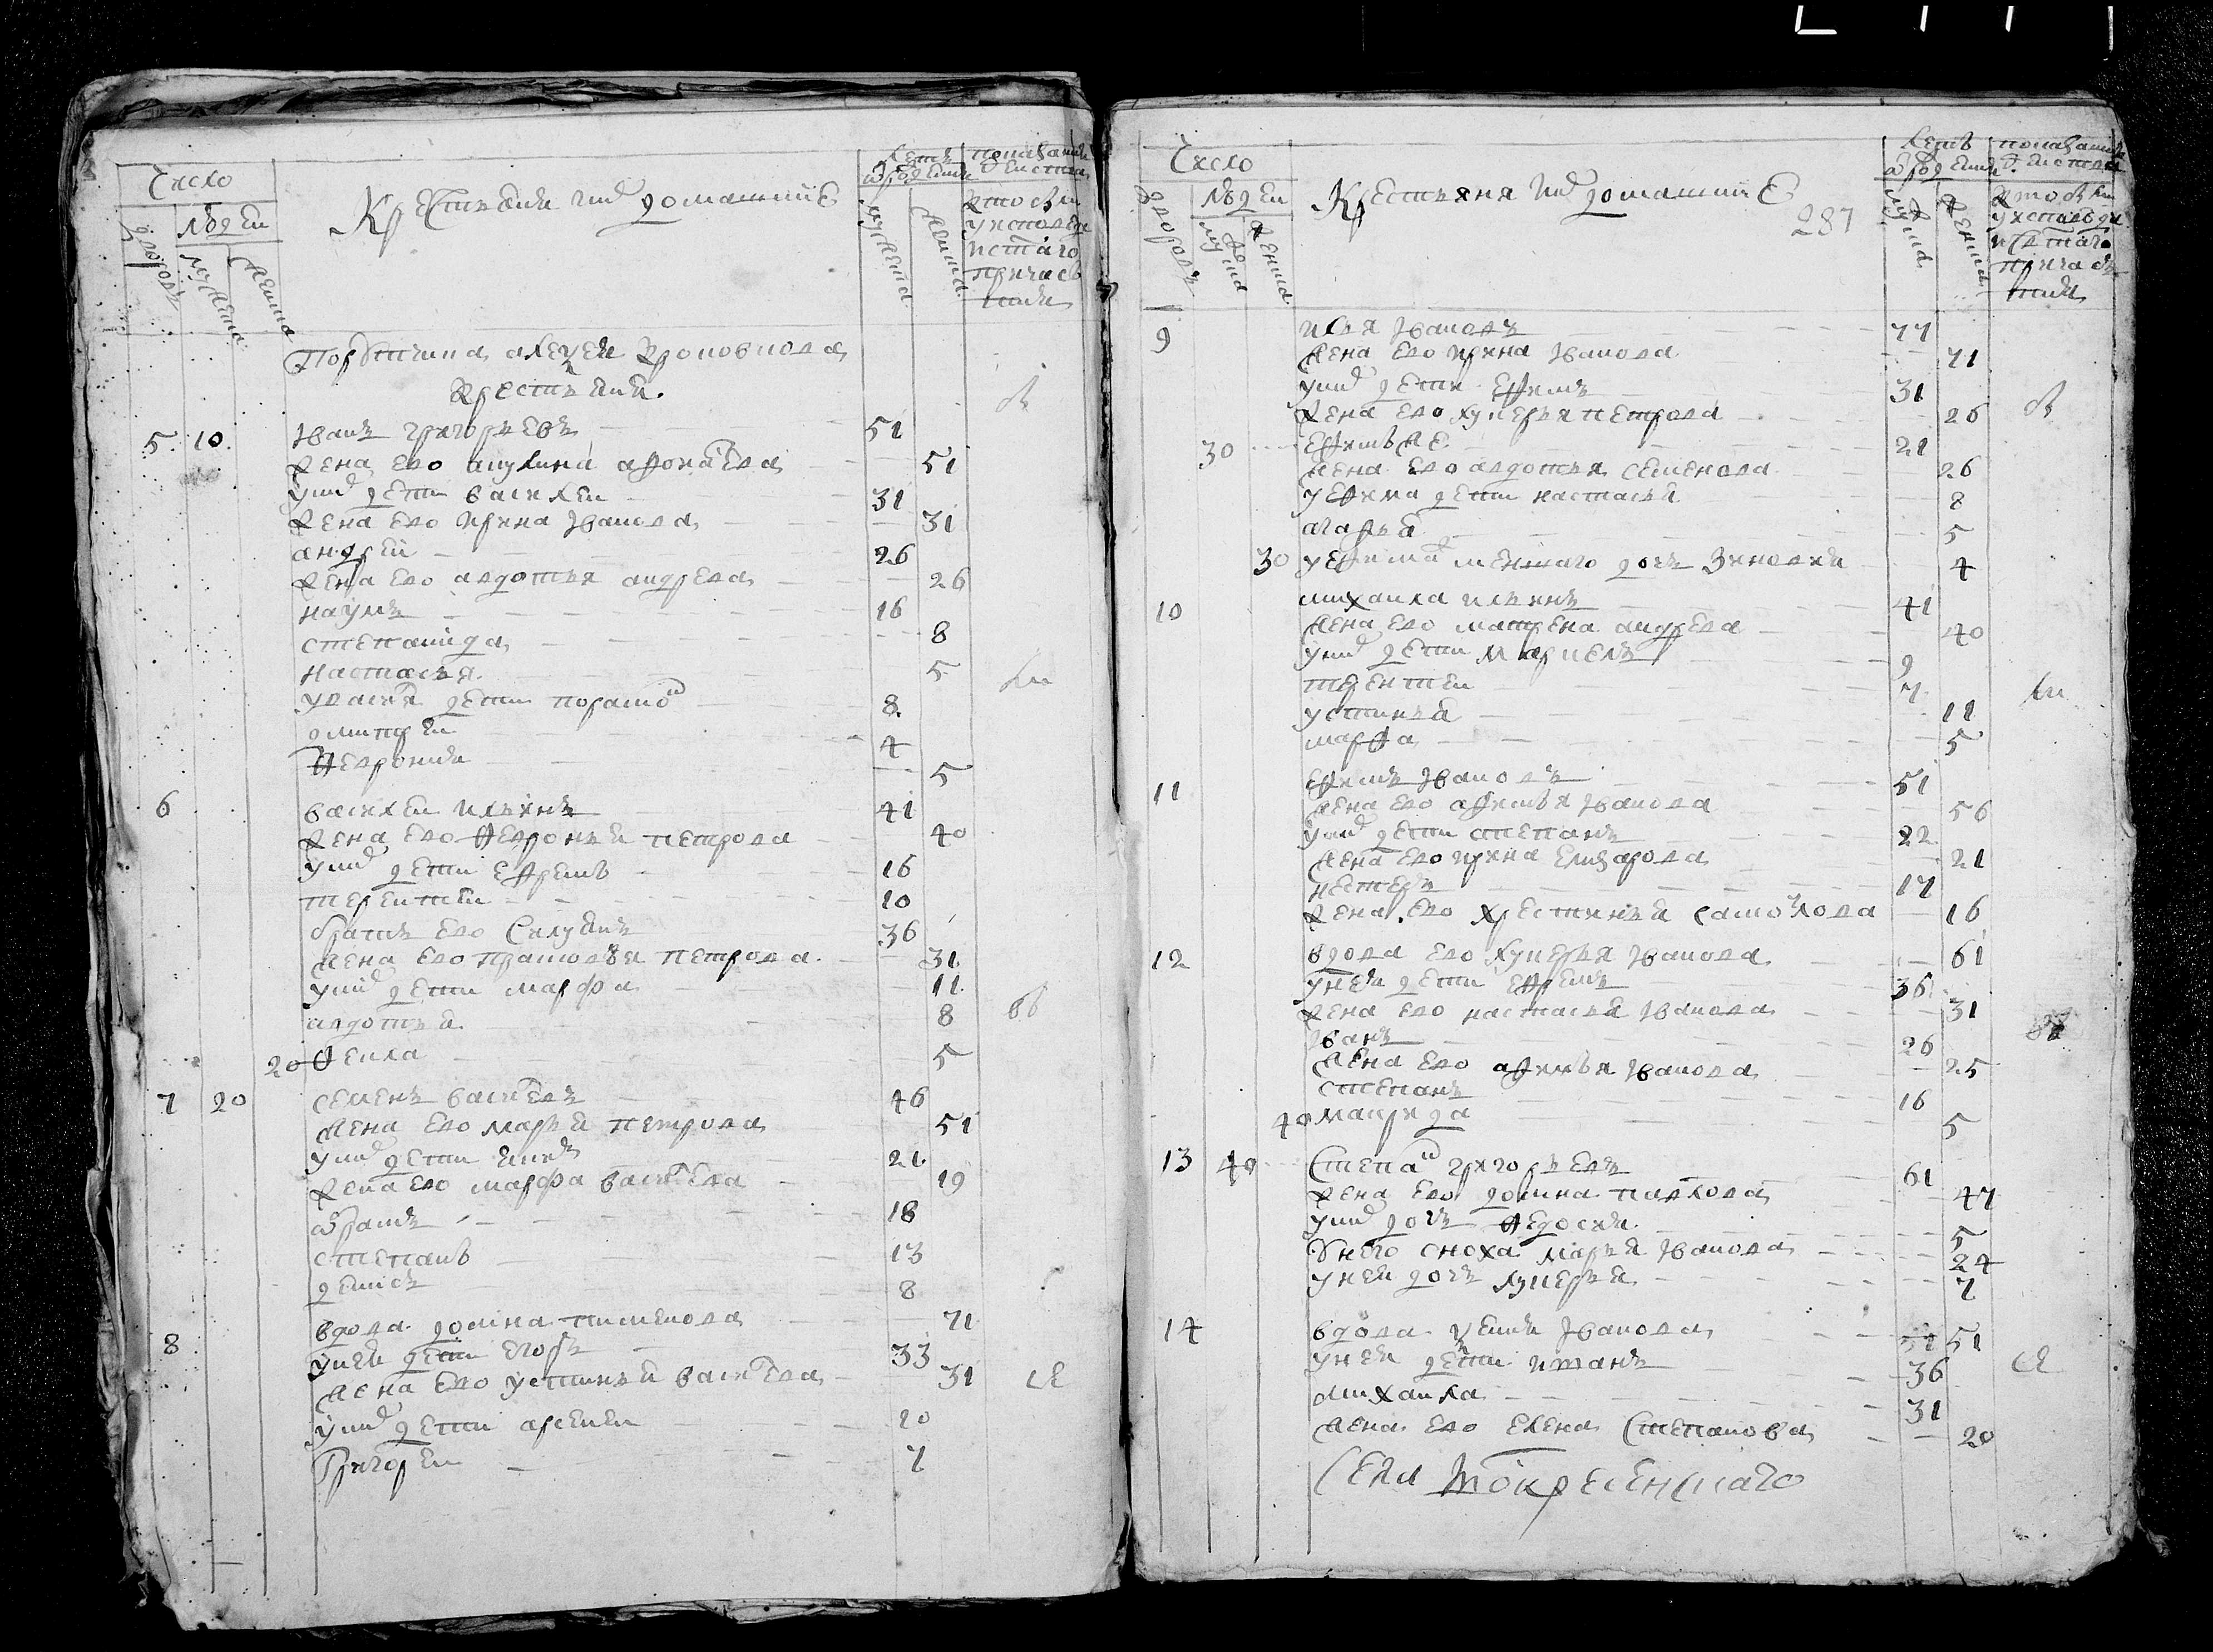 Число
Людей
дворовъ
мужеска
женска
Крестьяня и ихъ домашние
Летъ
от рождения
мужеска
женска
показание
действа
кто былъ
у исповеди
и святаго
причас
тия
крестьяня.
5 10 Иванъ григорьевъ 51
жена ево акулина 51
у них дети василеи 31
жена ево ирина Иванова 31
андреи 26
жена ево авдотья андреева 26
наумъ 16
степанида 8
настасья 5
8
дмитреи 4
Февронья 5
6 василеи ильинъ 41
жена ево Февронья петрова 40
у них дети ефремъ 16
терентеи 10
братъ ево Силуянъ 36
жена ево прасковья петрова 31
у них дети марфа 11
авдотья 8
20 Фекла 5
7 20 семенъ васильевъ 46
жена ево марья петрова 51
у них дети 21
жена ево марфа васильева 19
абрамъ 18
степанъ 13
денисъ 8
8 вдова домна пименова 71
у неи дети егоръ 33
жена ево устинья васильева 31
у них дети арсенеи 10
Григореи 7
Число
Людей
дворовъ
мужеска
женска
Крестьяня и ихъ домашние
287
Летъ
от рождения
мужеска
женска
показание
действа
кто были
у исповеди
и святаго
причас
тия
9 илья Ивановъ 77
жена ево ирина Иванова 71
у них дети ефимъ 31
жена ево лукерья петрова 26
30 ефимъ же 21
жена ево авдотья семенова 26
у ефима дети настасья 8
агафья 5
30 у ефима меншаго дочь Зиновья 4
10 михаила ильинъ 41
жена ево матрена андреева 40
у них дети маркелъ 9
терентеи 7
устинья 11
марфа 5
11 ефимъ Ивановъ 51
жена ево афимья Иванова 56
у них дети степанъ 22
жена ево ирина елизарова 21
нестеръ 17
жена ево христинья самоилова 16
12 вдова лукерья Иванова 61
у неи дети ефремъ 36
жена ево настасья Иванова 31
Иванъ 26
жена ево афимья Иванова 25
степанъ 16
40 маврида 5
13 40 Степанъ григорьевъ 61
жена ево домна павлова 47
у них дочь Федосья 5
у него сноха марья Иванова 24
у неи дочь лукерья 7
14 вдова Иванова 51
у неи дети 36
михаила 31
жена ево елена Степанова 20